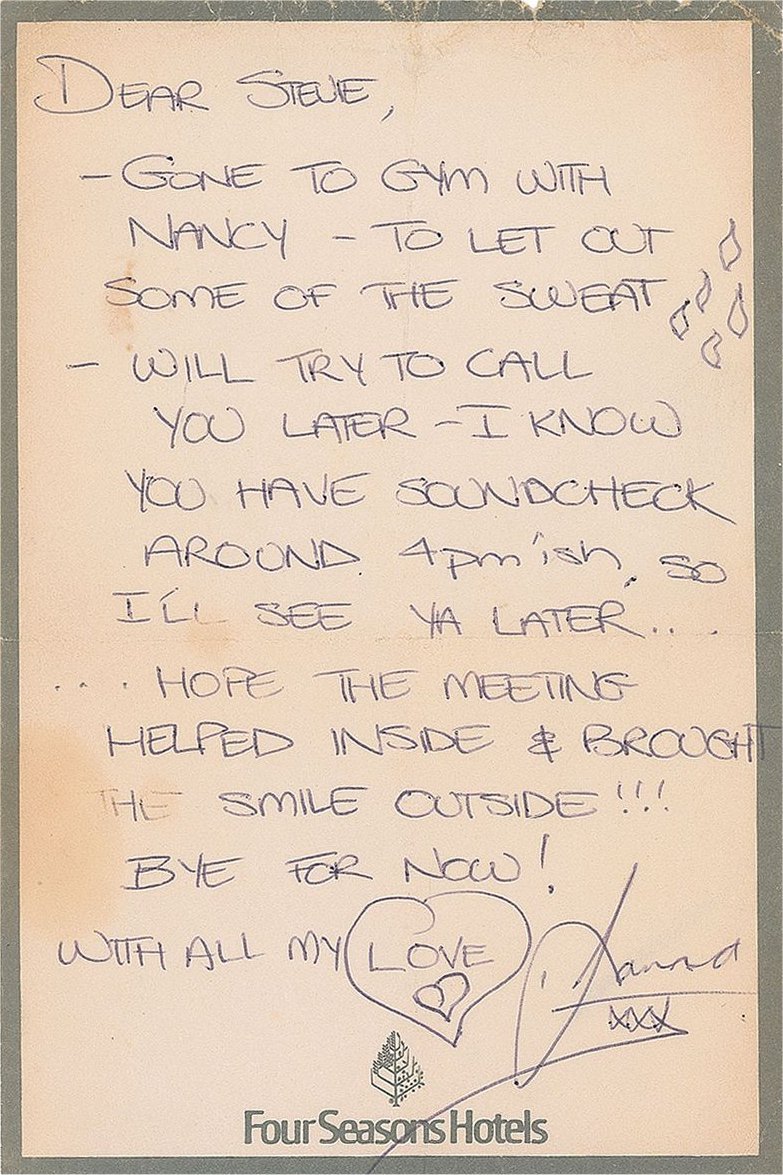 DEAR STEVE,
- GONE TO GYM WITH
NANCY - TO LET OUT
SOME OF THE SWEAT
- WILL TRY TO CALL
YOU LATER - I KNOW
YOU HAVE SOUNDCHECK
AROUND 4pm'ish, SO
I'LL SEE YA LATER....
.... HOPE THE MEETING
HELPED INSIDE & BROUGHT
THE SMILE OUTSIDE!!!
BYE FOR NOW!
WITH ALL MY LOVE
xxx
Four Seasons Hotels